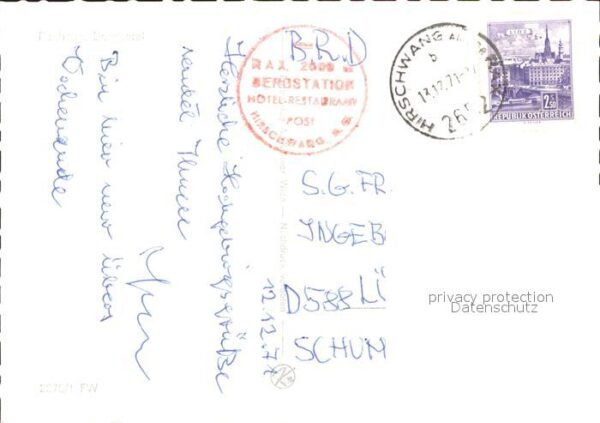 Herzliche Hochgebirgsgrüße
sendet Ihnen
Bin hier nur übers
Wochenende
12.12.71
B.R.D
S.G. FR.
INGEB
D588 LÜ
SCHUM
RAX, 2000 m
BERGSTATION
HOTEL-RESTAURANT
POST
HIRSCHWANG, N.Ö.
HIRSCHWANG AN DER RAX
b
13.12.71
2652
WIEN
2.50
REPUBLIK ÖSTERREICH
privacy protection
Datenschutz